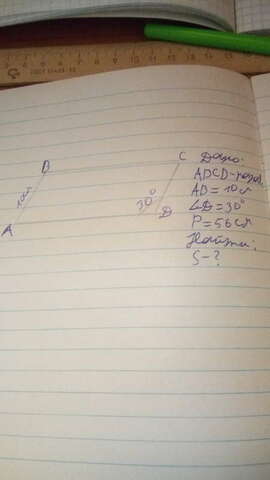 B
C
10 см
30°
A
D
Дано:
ABCD-парал.
AB = 10 см
∠D = 30°
P = 56 см
Найти:
S - ?